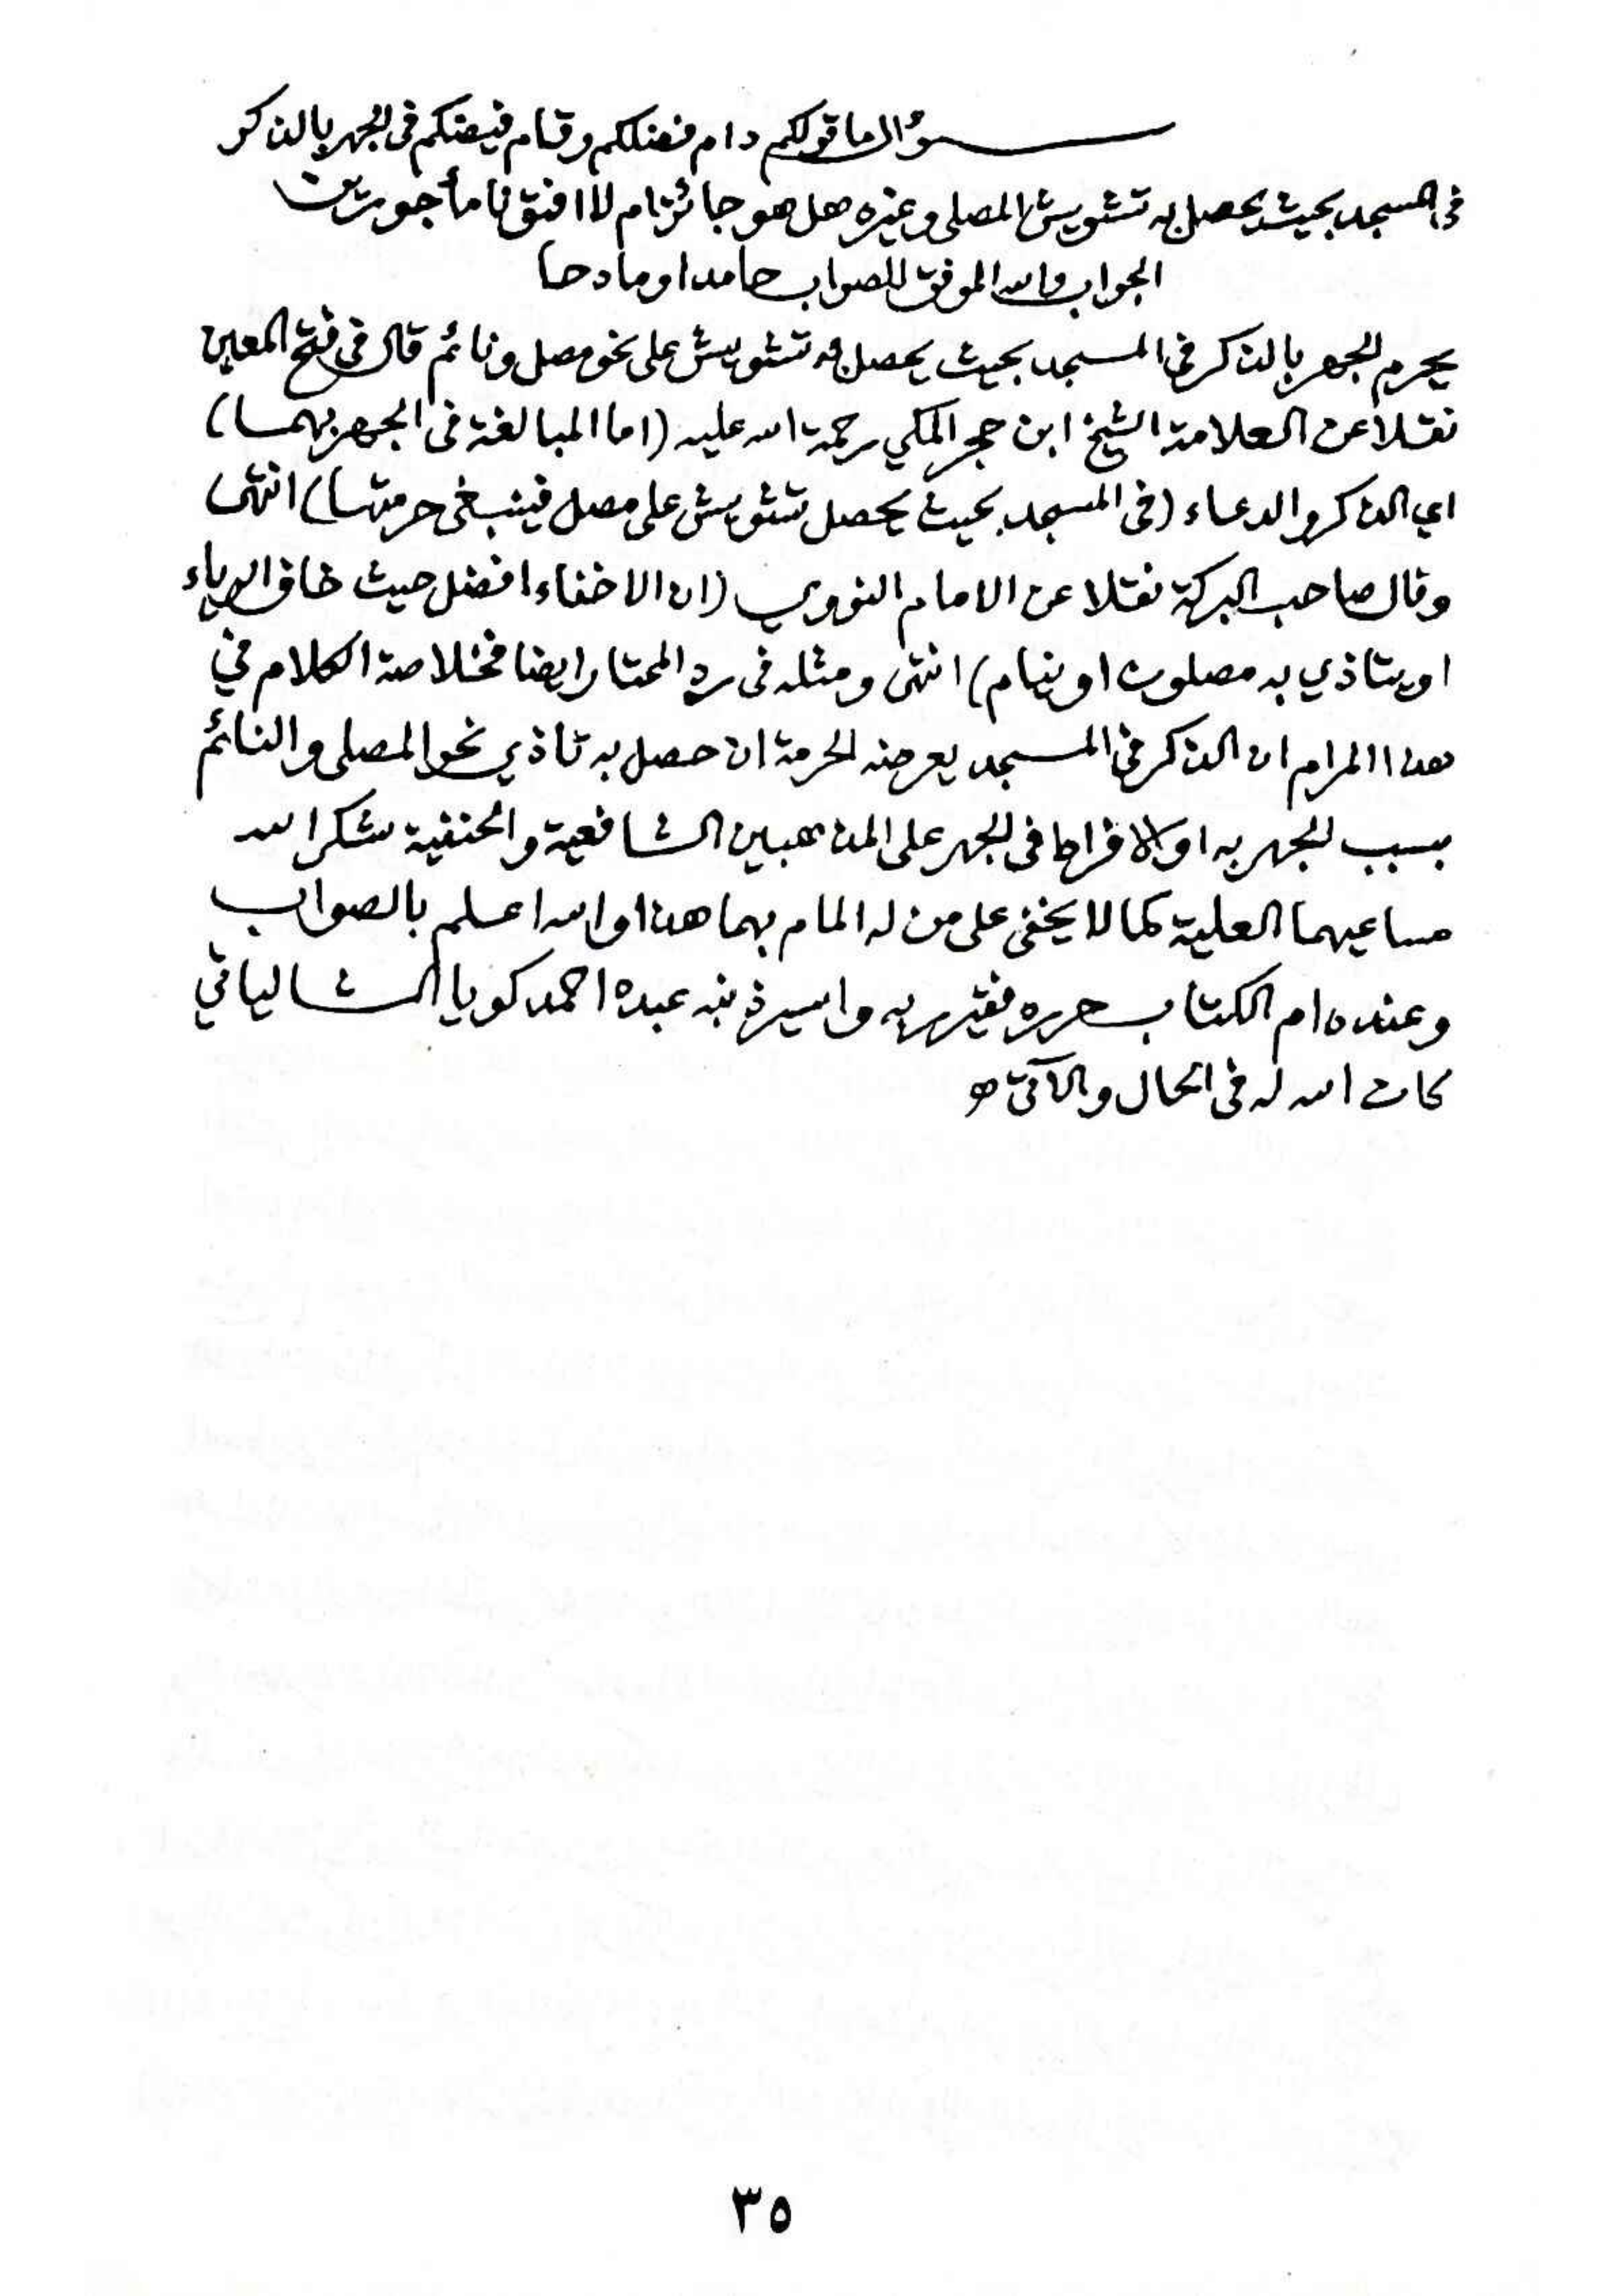 سؤال ما قولكم دام فضلكم وقام فيضكم فى الجهر بالذكر
فى المسجد بحيث يحصل به تشويش المصلى وغيره هل هو جائز ام لا افتونا مأجورين
الجواب والله الموفق للصواب حامدا ومادحا
يحرم الجهر بالذكر في المسجد بحيث يحصل به تشويش على نحو مصل ونائم قال فى فتح المعين
نقلا عن العلامة الشيخ ابن حجر المكي رحمة الله عليه (اما المبالغة فى الجهر بهما)
اي الذكر والدعاء (فى المسجد بحيث يحصل تشويش على مصل فينبغى حرمتها) انتهى
وقال صاحب البركة نقلا عن الامام النووي (ان الاخفاء افضل حيث خاف الرياء
او يتاذي به مصلون او ينام) انتهى ومثله فى رد المحتار ايضا فخلاصة الكلام في
هذا المرام ان الذكر في المسجد يعرضه الحرمة ان حصل به تاذي نحو المصلى والنائم
بسبب الجهر به او الافراط فى الجهر على المذهبين الشافعية والحنفية شكر الله
مساعيهما العلية كما لا يخفى على من له المام بهما هذا والله اعلم بالصواب
وعنده ام الكتاب حرره فقير ربه واسير ذنبه عبده احمد كويا الشالياتي
كان الله له فى الحال والآتى
٣٥